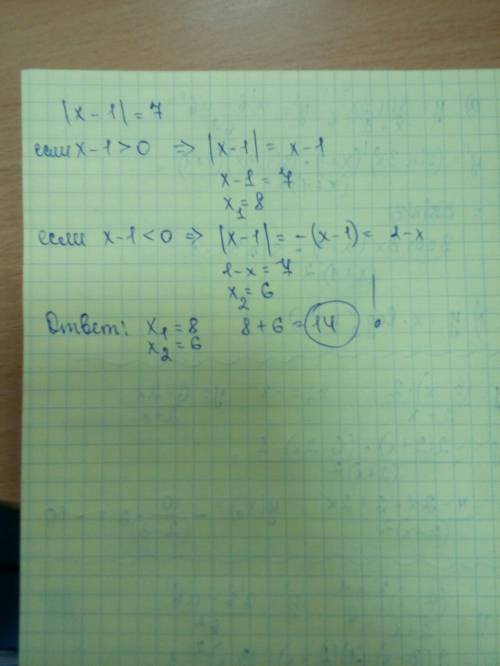 |x-1| = 7
если x-1>0 => |x-1| = x-1
x-1 = 7
x₁ = 8
если x-1<0 => |x-1| = -(x-1) = 1-x
1-x = 7
x₂ = 6
Ответ: x₁ = 8 8+6 = 14
x₂ = 6